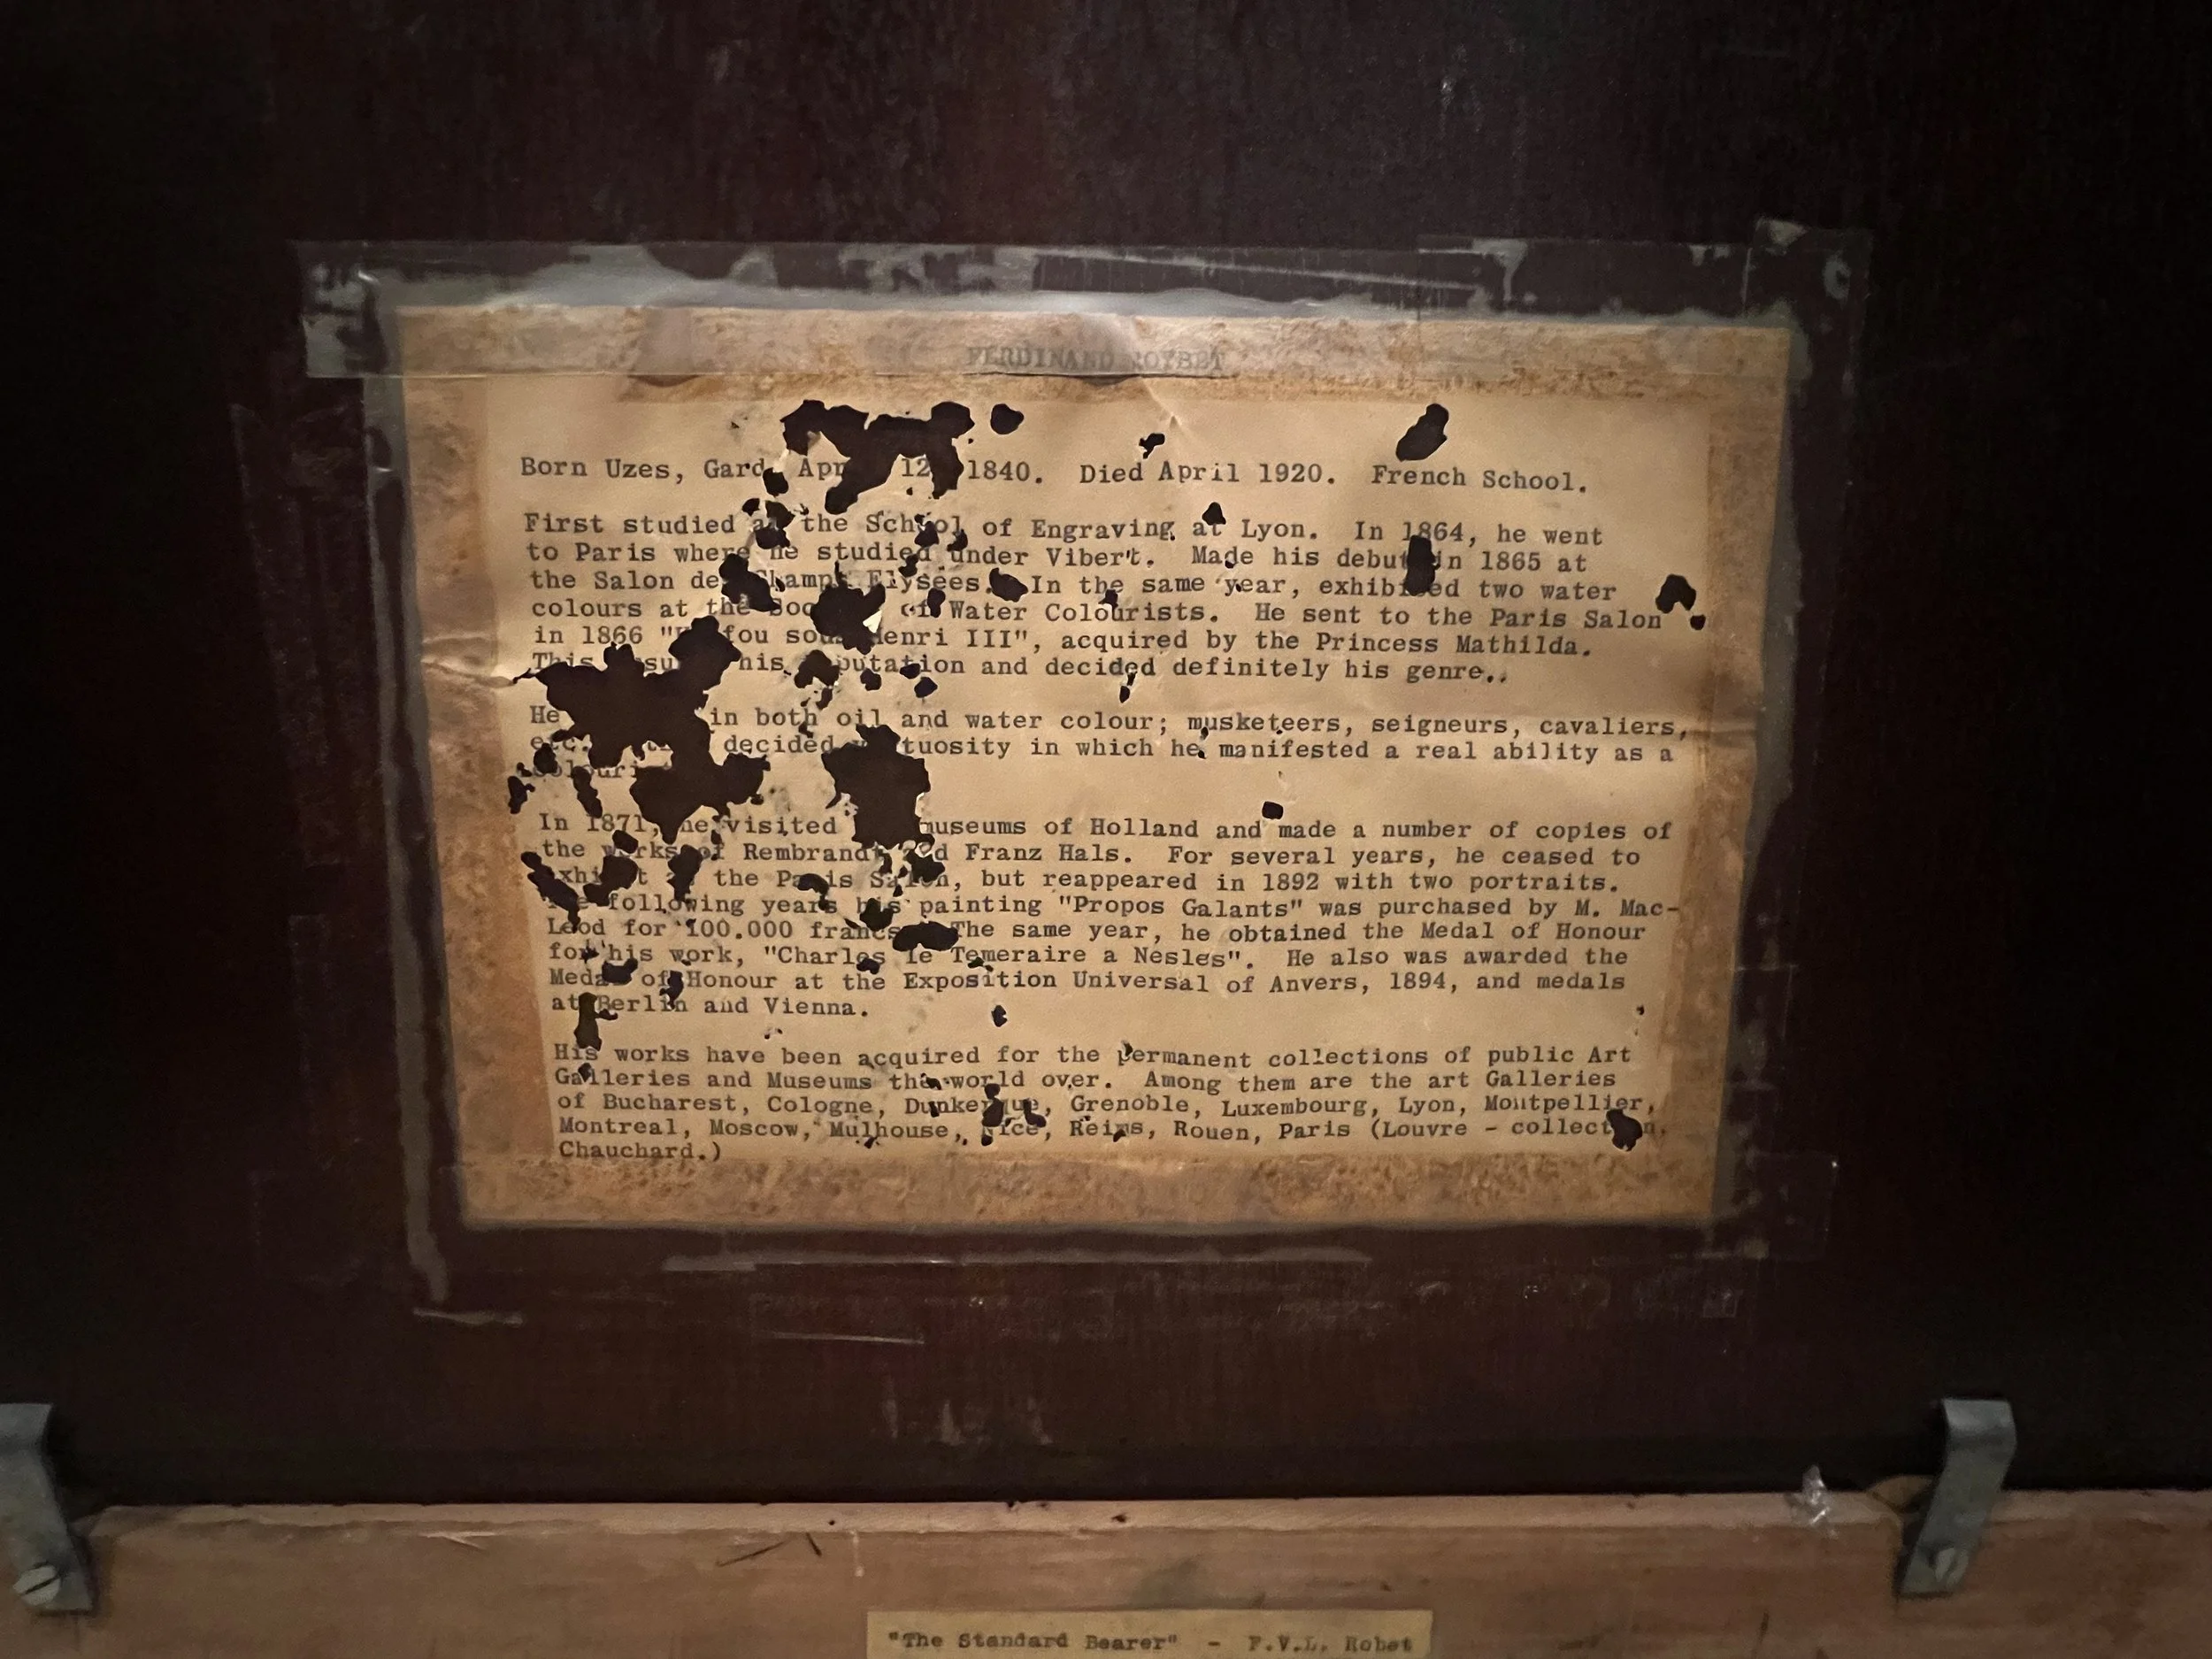 FERDINAND ROYBET
Born Uzes, Gard, 12, 1840. Died April 1920. French School.
First studied at the School of Engraving at Lyon. In 1864, he went
to Paris where he studied under Vibert. Made his debut in 1865 at
the Salon des Champs Elysees. In the same year, exhibited two water
colours at the of Water Colourists. He sent to the Paris Salon
in 1866 " fou sous Henri III", acquired by the Princess Mathilda.
This his reputation and decided definitely his genre.
He in both oil and water colour; musketeers, seigneurs, cavaliers,
etc. decided virtuosity in which he manifested a real ability as a
In 1871, he visited museums of Holland and made a number of copies of
the works of Rembrandt and Franz Hals. For several years, he ceased to
exhibit at the Paris Salon, but reappeared in 1892 with two portraits.
The following years his painting "Propos Galants" was purchased by M. Mac-
Leod for 100.000 francs. The same year, he obtained the Medal of Honour
for his work, "Charles le Temeraire a Nesles". He also was awarded the
Medal of Honour at the Exposition Universal of Anvers, 1894, and medals
at Berlin and Vienna.
His works have been acquired for the permanent collections of public Art
Galleries and Museums the world over. Among them are the art Galleries
of Bucharest, Cologne, Dunkerque, Grenoble, Luxembourg, Lyon, Montpellier,
Montreal, Moscow, Mulhouse, Nice, Reims, Rouen, Paris (Louvre - collection
Chauchard.)
"The Standard Bearer" - F.V.L. Robet